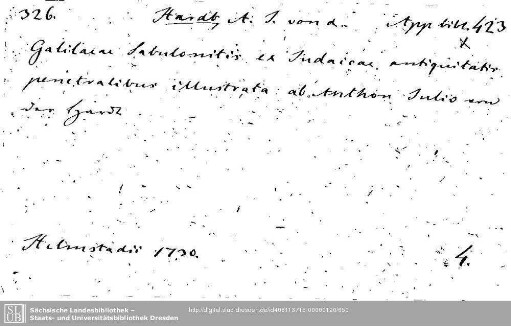 326. Hardt, A. J. von d. App. bibl. 423
x
Galilaeae Sabulonitis ex Judaicae antiquitatis
penetralibus illustrata ab Anthon Julio von
der Hardt
Helmstadii 1730. 4.
Sächsische Landesbibliothek –
Staats- und Universitätsbibliothek Dresden